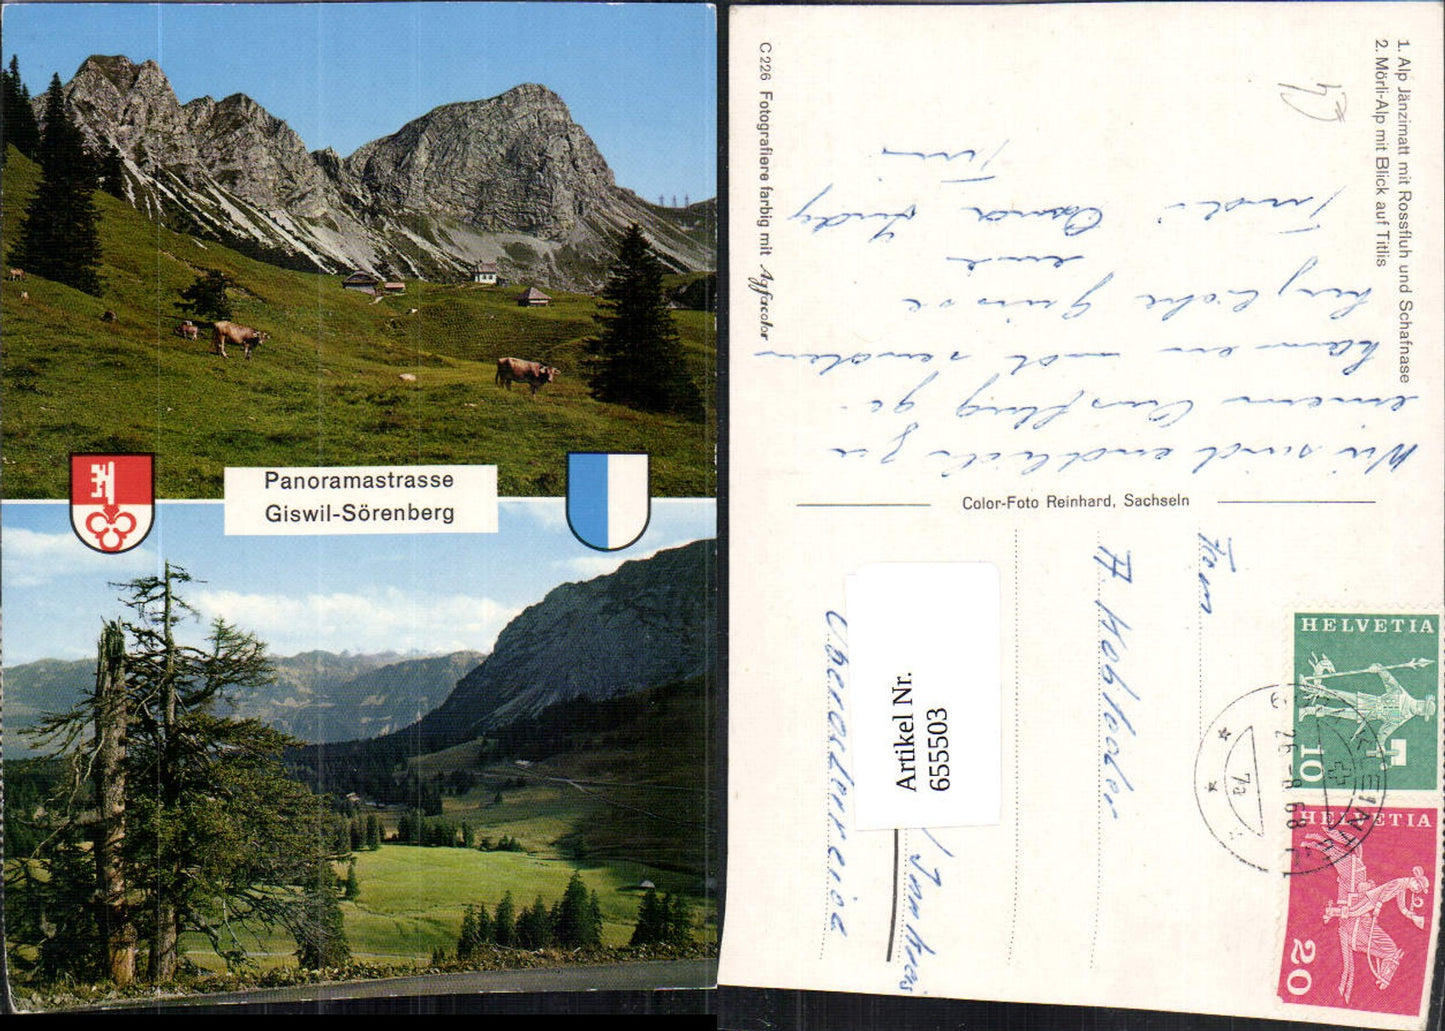 Panoramastrasse
Giswil-Sörenberg
1. Alp Jänzimatt mit Rossfluh und Schafnase
2. Mörli-Alp mit Blick auf Titlis
C 226 Fotografiere farbig mit Agfacolor
Color-Foto Reinhard, Sachseln
Wir sind endlich zu
einem Ausflug ge-
kommen und senden
herzliche Grüsse
Fam
A
Oberösterreich
Artikel Nr.
655503
HELVETIA
10
HELVETIA
20
26.-8.68
7a